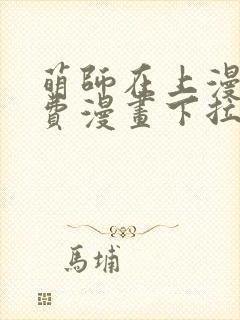 萌師在上漫
費漫畫下拉
馬埔